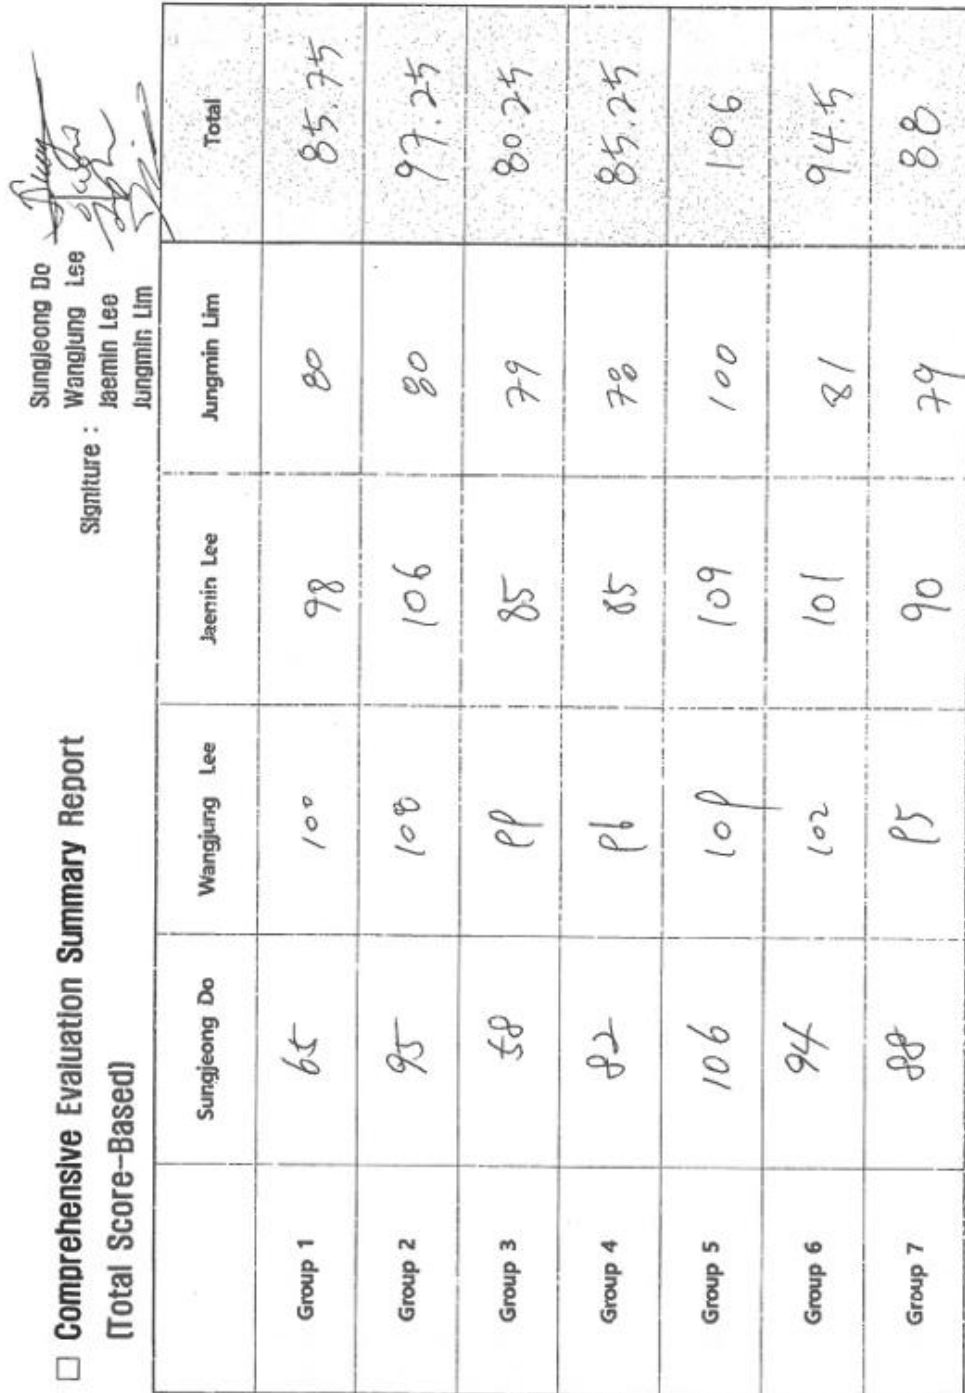 □ Comprehensive Evaluation Summary Report
(Total Score-Based)
Sungjeong Do
Signiture : Wangjung Lee
Jaemin Lee
Jungmin Lim
Sungjeong Do Wangjung Lee Jaemin Lee Jungmin Lim Total
Group 1 65 100 98 80 85.75
Group 2 95 108 106 80 97.25
Group 3 58 99 85 79 80.25
Group 4 82 96 85 78 85.25
Group 5 106 109 109 100 106
Group 6 94 102 101 81 94.5
Group 7 88 95 90 79 88